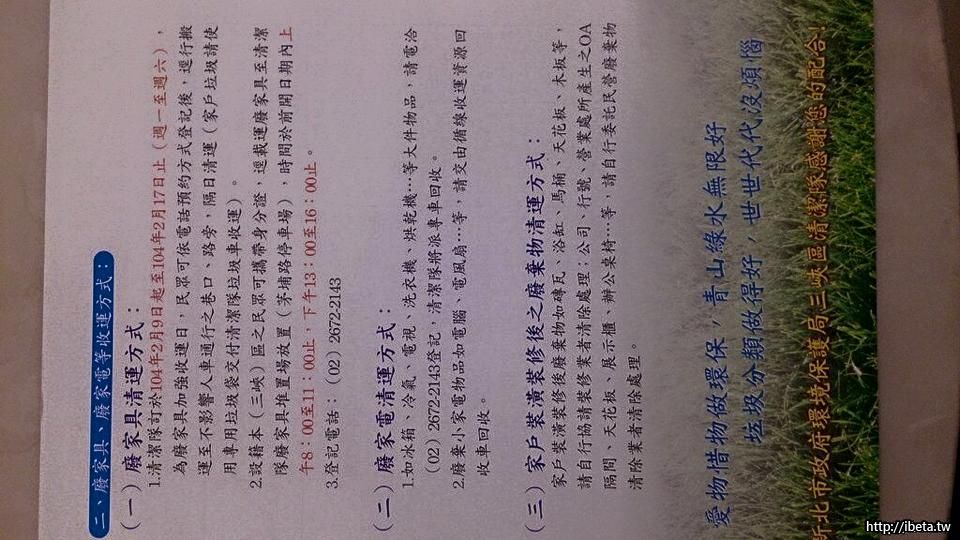 二、廢家具、廢家電等收運方式：
（一）廢家具清運方式：
1.清潔隊訂於104年2月9日起至104年2月17日止（週一至週六），
為廢家具加強收運日，民眾可依電話預約方式登記後，逕行搬
運至不影響人車通行之巷口、路旁，隔日清運（家戶垃圾請使
用專用垃圾袋交付清潔隊垃圾車收運）。
2.設籍本（三峽）區之民眾可攜帶身分證，逕載運廢家具至清潔
隊廢家具堆置場放置（茅埔路停車場），時間於前開日期內上
午8：00至11：00止，下午13：00至16：00止。
3.登記電話：（02）2672-2143
（二）廢家電清運方式：
1.如冰箱、冷氣、電視、洗衣機、烘乾機…等大件物品，請電洽
（02）2672-2143登記，清潔隊將派專車回收。
2.廢棄小家電物品如電腦、電風扇…等，請交由循線收運資源回
收車回收。
（三）家戶裝潢裝修後之廢棄物清運方式：
家戶裝潢裝修後廢棄物如磚瓦、浴缸、馬桶、天花板、木板等，
請自行協請裝修業者清除處理；公司、行號、營業處所產生之OA
隔間、天花板、展示櫃、辦公桌椅…等，請自行委託民營廢棄物
清除業者清除處理。
愛物惜物做環保，青山綠水無限好
垃圾分類做得好，世世代代沒煩惱
新北市政府環境保護局三峽區清潔隊感謝您的配合!
http://ibeta.tw